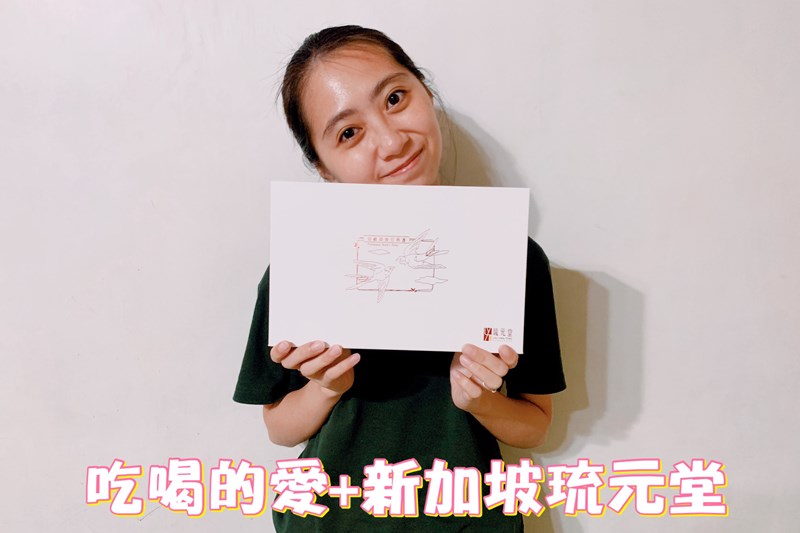 琉元堂
吃喝的愛+新加坡琉元堂